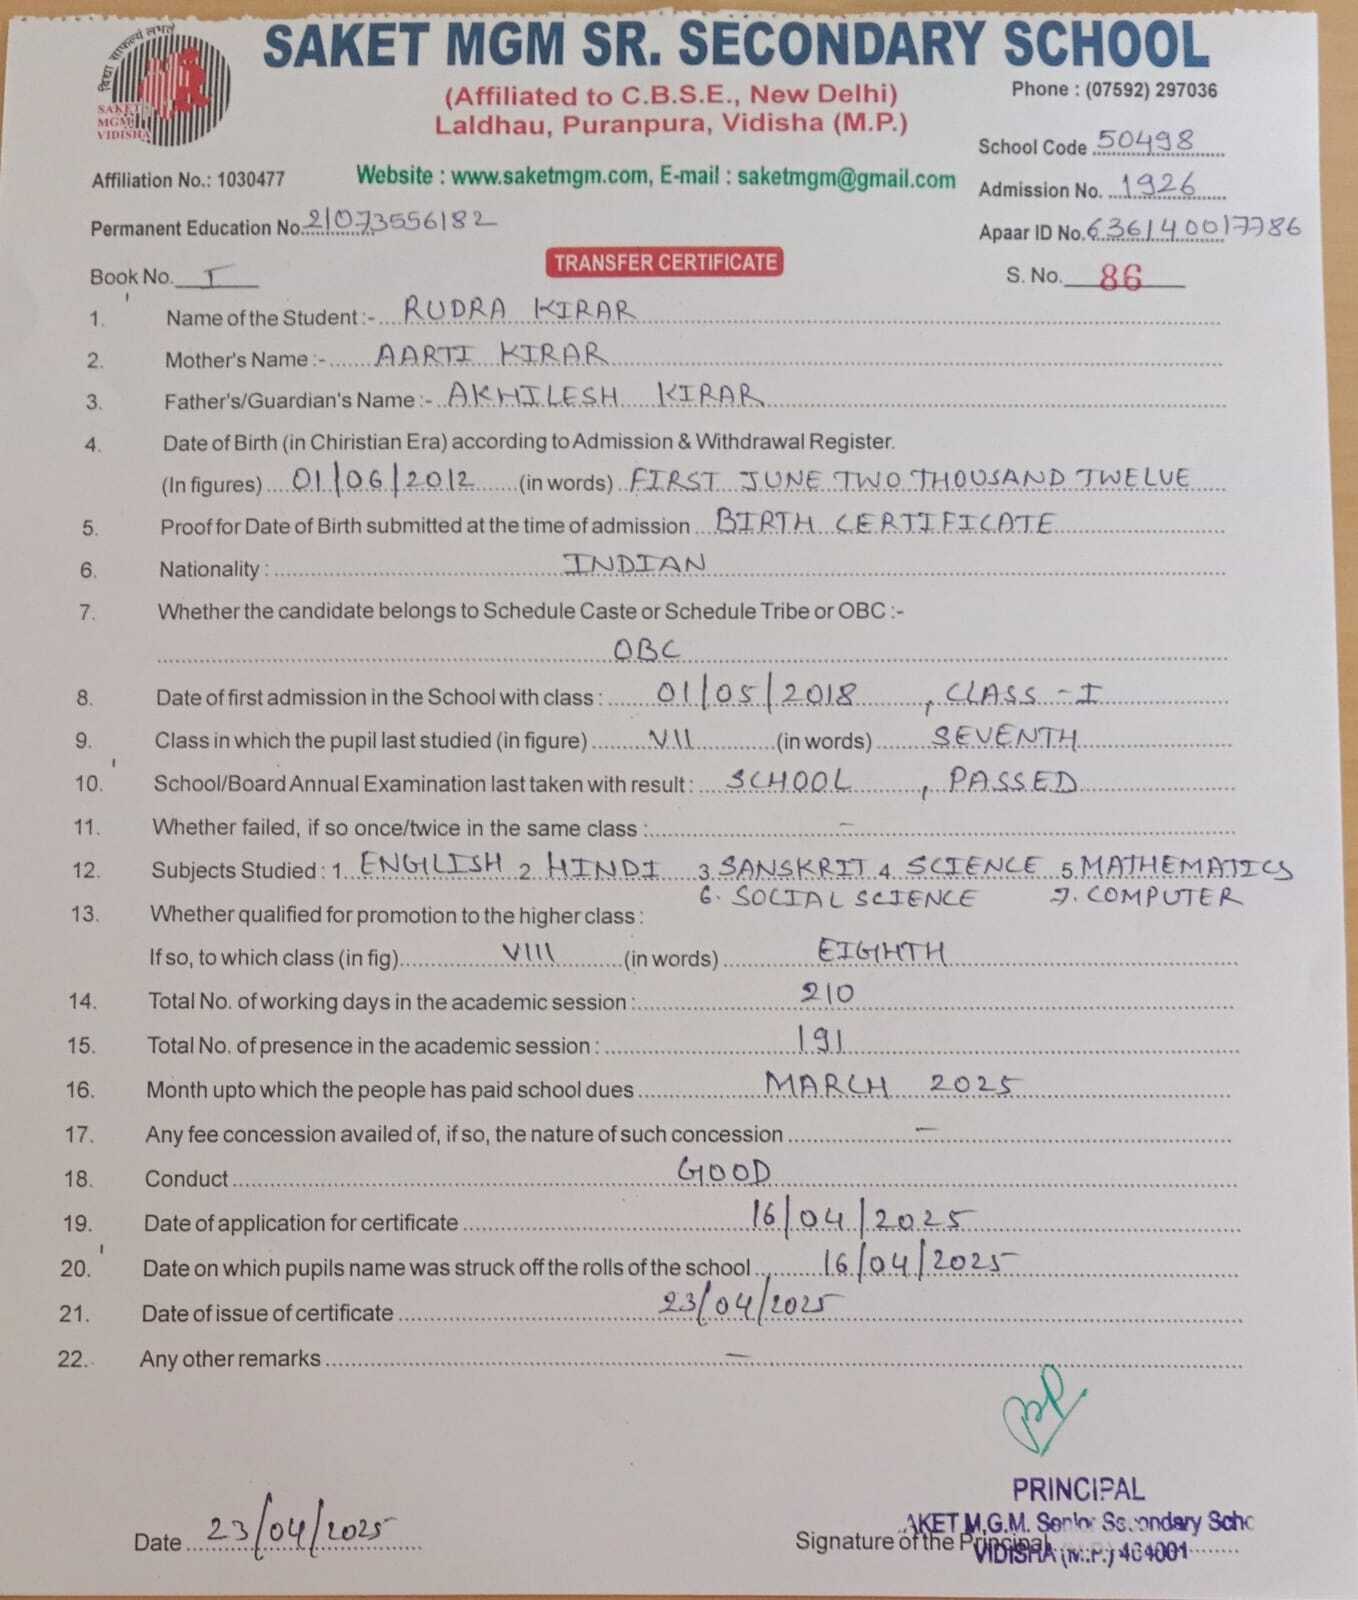 विद्या साफल्यं लभते
SAKET
MGM
VIDISHA
SAKET MGM SR. SECONDARY SCHOOL
(Affiliated to C.B.S.E., New Delhi)
Phone : (07592) 297036
Laldhau, Puranpura, Vidisha (M.P.)
School Code 50498
Affiliation No.: 1030477
Website : www.saketmgm.com, E-mail : saketmgm@gmail.com
Admission No. 1926
Permanent Education No. 21073556182
Apaar ID No. 636140017786
Book No. I
TRANSFER CERTIFICATE
S. No. 86
1. Name of the Student :- RUDRA KIRAR
2. Mother's Name :- AARTI KIRAR
3. Father's/Guardian's Name :- AKHILESH KIRAR
4. Date of Birth (in Chiristian Era) according to Admission & Withdrawal Register.
(In figures) 01/06/2012 (in words) FIRST JUNE TWO THOUSAND TWELVE
5. Proof for Date of Birth submitted at the time of admission BIRTH CERTIFICATE
6. Nationality : INDIAN
7. Whether the candidate belongs to Schedule Caste or Schedule Tribe or OBC :-
OBC
8. Date of first admission in the School with class : 01/05/2018 , CLASS - I
9. Class in which the pupil last studied (in figure) VII (in words) SEVENTH
10. School/Board Annual Examination last taken with result : SCHOOL , PASSED
11. Whether failed, if so once/twice in the same class : -
12. Subjects Studied : 1. ENGILISH 2. HINDI 3. SANSKRIT 4. SCIENCE 5. MATHEMATICS
6. SOCIAL SCIENCE 7. COMPUTER
13. Whether qualified for promotion to the higher class :
If so, to which class (in fig) VIII (in words) EIGHTH
14. Total No. of working days in the academic session : 210
15. Total No. of presence in the academic session : 191
16. Month upto which the people has paid school dues MARCH 2025
17. Any fee concession availed of, if so, the nature of such concession -
18. Conduct GOOD
19. Date of application for certificate 16/04/2025
20. Date on which pupils name was struck off the rolls of the school 16/04/2025
21. Date of issue of certificate 23/04/2025
22. Any other remarks -
PRINCIPAL
AKET M.G.M. Senior Secondary Scho
Date 23/04/2025
Signature of the Principal
VIDISHA (M.P.) 464001